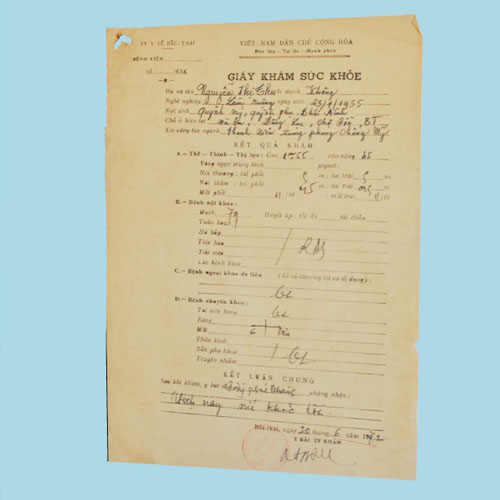 TY Y TẾ BẮC-THÁI
VIỆT-NAM DÂN CHỦ CỘNG HÒA
Độc lập - Tự do - Hạnh phúc
BỆNH VIỆN
Số /KSK
GIẤY KHÁM SỨC KHỎE
Họ và tên Nguyễn Thị Thu bí danh Không
Nghề nghiệp Làm ruộng ngày sinh 23/1/1955
Nơi sinh Quỳnh Mỹ, Quỳnh Phụ, Thái Bình
Chỗ ở hiện tại BT
Xin công tác ngành Thanh niên xung phong Chống Mỹ
KẾT QUẢ KHÁM
A.- Thể - Thính - Thị lực: Cao 1m55 cân nặng 45
Vòng ngực trung bình pignet:
Nói thường: tai phải 5 m; tai trái 5 m
Nói thầm: tai phải 0,5 m; tai trái 0,5 m
Mắt phải /10 mắt trái /10
B.- Bệnh nội khoa:
Mạch 79 Huyết áp: tối đa tối thiểu
Tuần hoàn
Hô hấp
Tiêu hóa
Tiết niệu
Các bệnh khác
C.- Bệnh ngoại khoa da liễu (Kể cả thương tật và dị dạng):
D.- Bệnh chuyên khoa:
Tai mũi họng
Răng
Mắt
Thần kinh
Sản phụ khoa
Truyền nhiễm
KẾT LUẬN CHUNG
Sau khi khám, y bác sĩ chứng nhận:
Hiện nay sức khỏe tốt
Bắc Thái, ngày 20 tháng 6 năm 1972
Y BÁC SỸ KHÁM